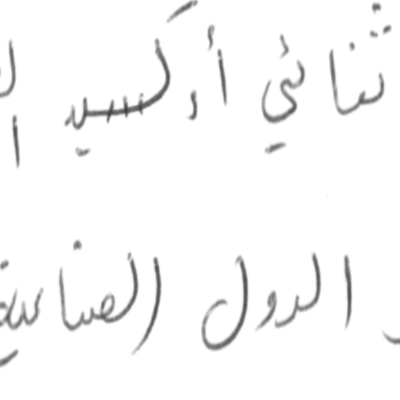 ثنائي أوكسيد
الدول الصناعية